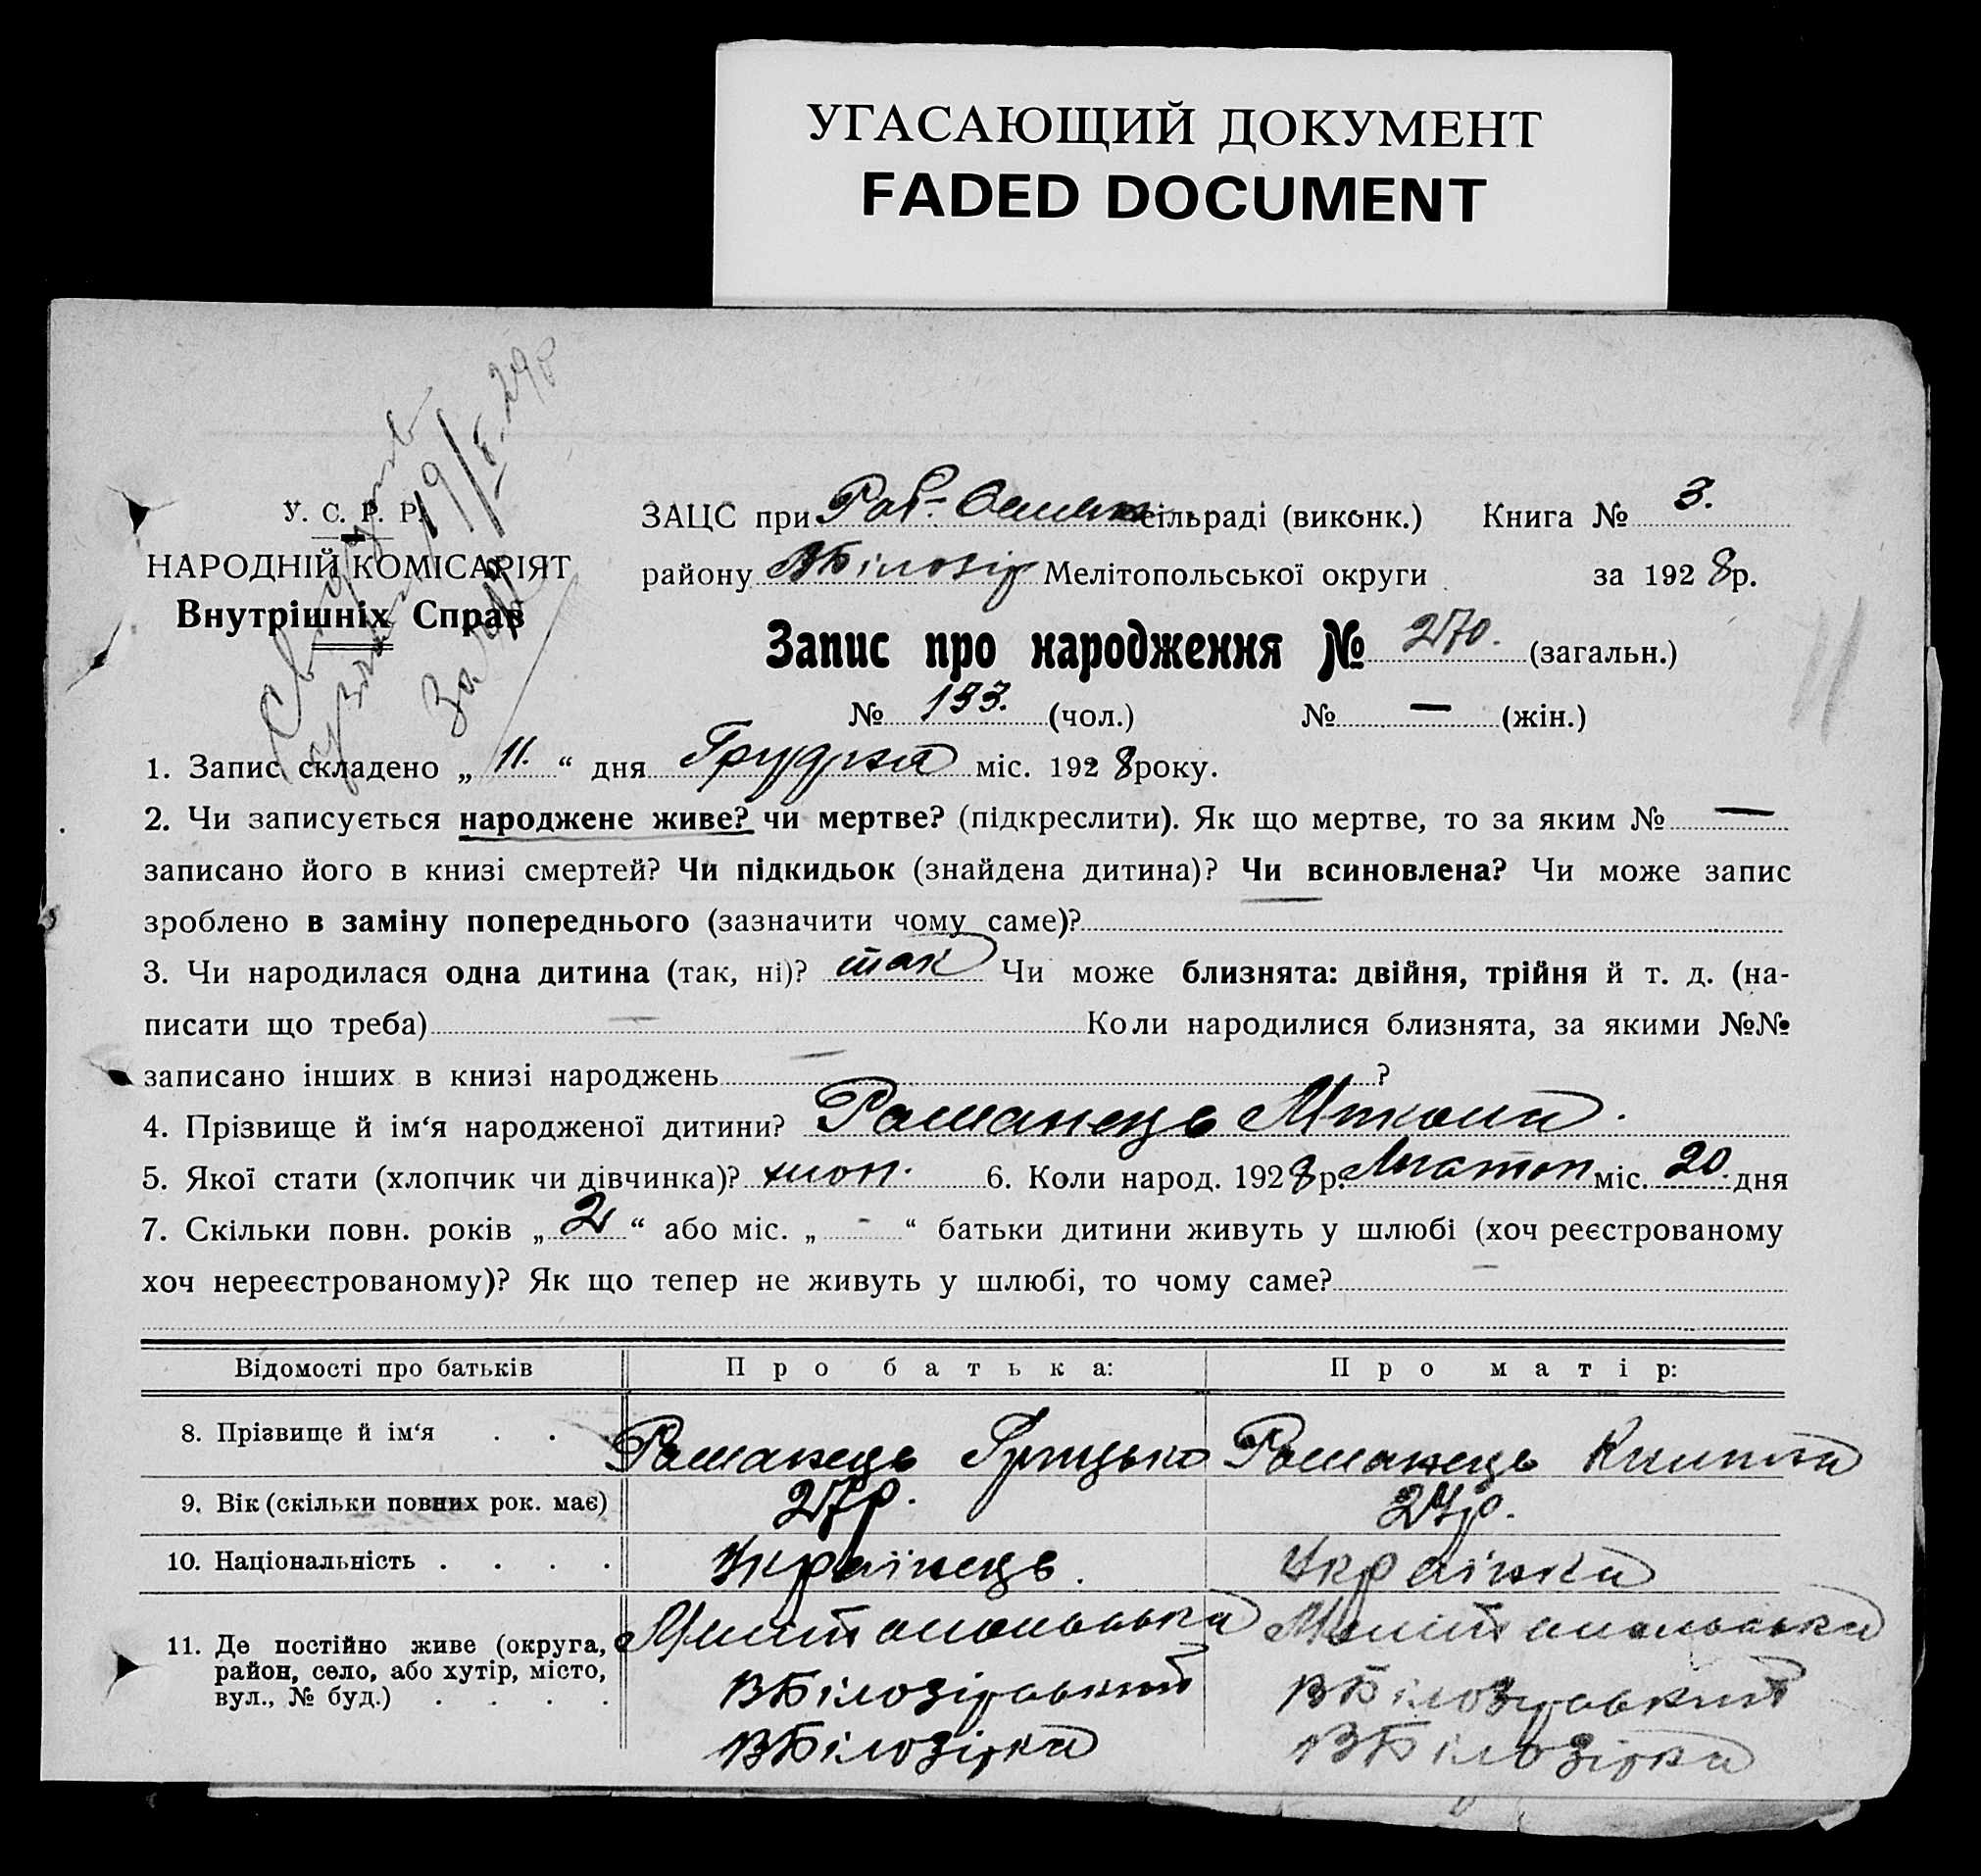 УГАСАЮЩИЙ ДОКУМЕНТ
FADED DOCUMENT
У. С. Р. Р.
НАРОДНІЙ КОМІСАРІЯТ
Внутрішніх Справ
ЗАЦС при сільраді (виконк.) Книга № 3.
району ВБілозір Мелітопольської округи за 1928р.
Запис про народження № 270. (загальн.)
№ 133. (чол.) № — (жін.)
1. Запис складено „ 11. “ дня Грудня міс. 1928року.
2. Чи записується народжене живе? чи мертве? (підкреслити). Як що мертве, то за яким № —
записано його в книзі смертей? Чи підкидьок (знайдена дитина)? Чи всиновлена? Чи може запис
зроблено в заміну попереднього (зазначити чому саме)?
3. Чи народилася одна дитина (так, ні)? так Чи може близнята: двійня, трійня й т. д. (на-
писати що треба) — Коли народилися близнята, за якими №№
записано інших в книзі народжень — ?
4. Прізвище й ім‘я народженої дитини? Романець Микола.
5. Якої стати (хлопчик чи дівчинка)? хлоп. 6. Коли народ. 1928р. Листоп міс. 20. дня
7. Скільки повн. років „ 2 “ або міс. „ - “ батьки дитини живуть у шлюбі (хоч реєстрованому
хоч нереєстрованому)? Як що тепер не живуть у шлюбі, то чому саме? —
Відомості про батьків Про батька: Про матір:
8. Прізвище й ім‘я . . Романець Грицько Романець Килина
9. Вік (скільки повних рок. має) 27р. 27р.
10. Національність . . . . Українець. Українка
11. Де постійно живе (округа, район, село, або хутір, місто, вул., № буд.) . . . .
Мелітопольська Мелітопольська
ВБілозірський ВБілозірський
ВБілозірка ВБілозірка